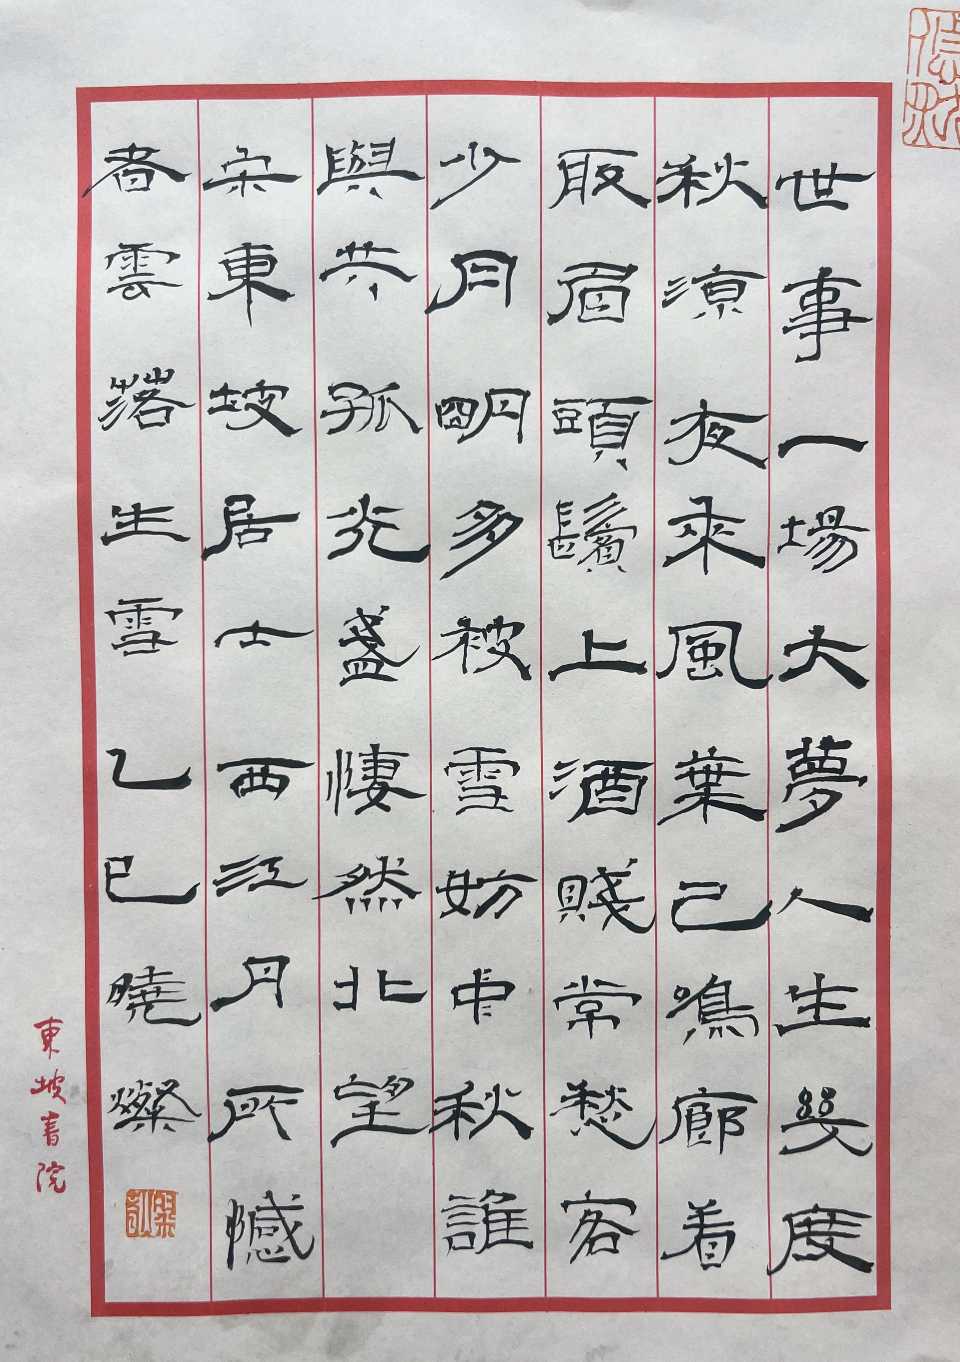 世事一場大夢人生幾度
秋涼夜來風葉已鳴廊着
取眉頭鬢上酒賤常愁客
少月明多被雪妨中秋誰
與共孤光盞悽然北望
宋東坡居士西江月所憾
者雲落生雪乙巳曉燦
東坡書院